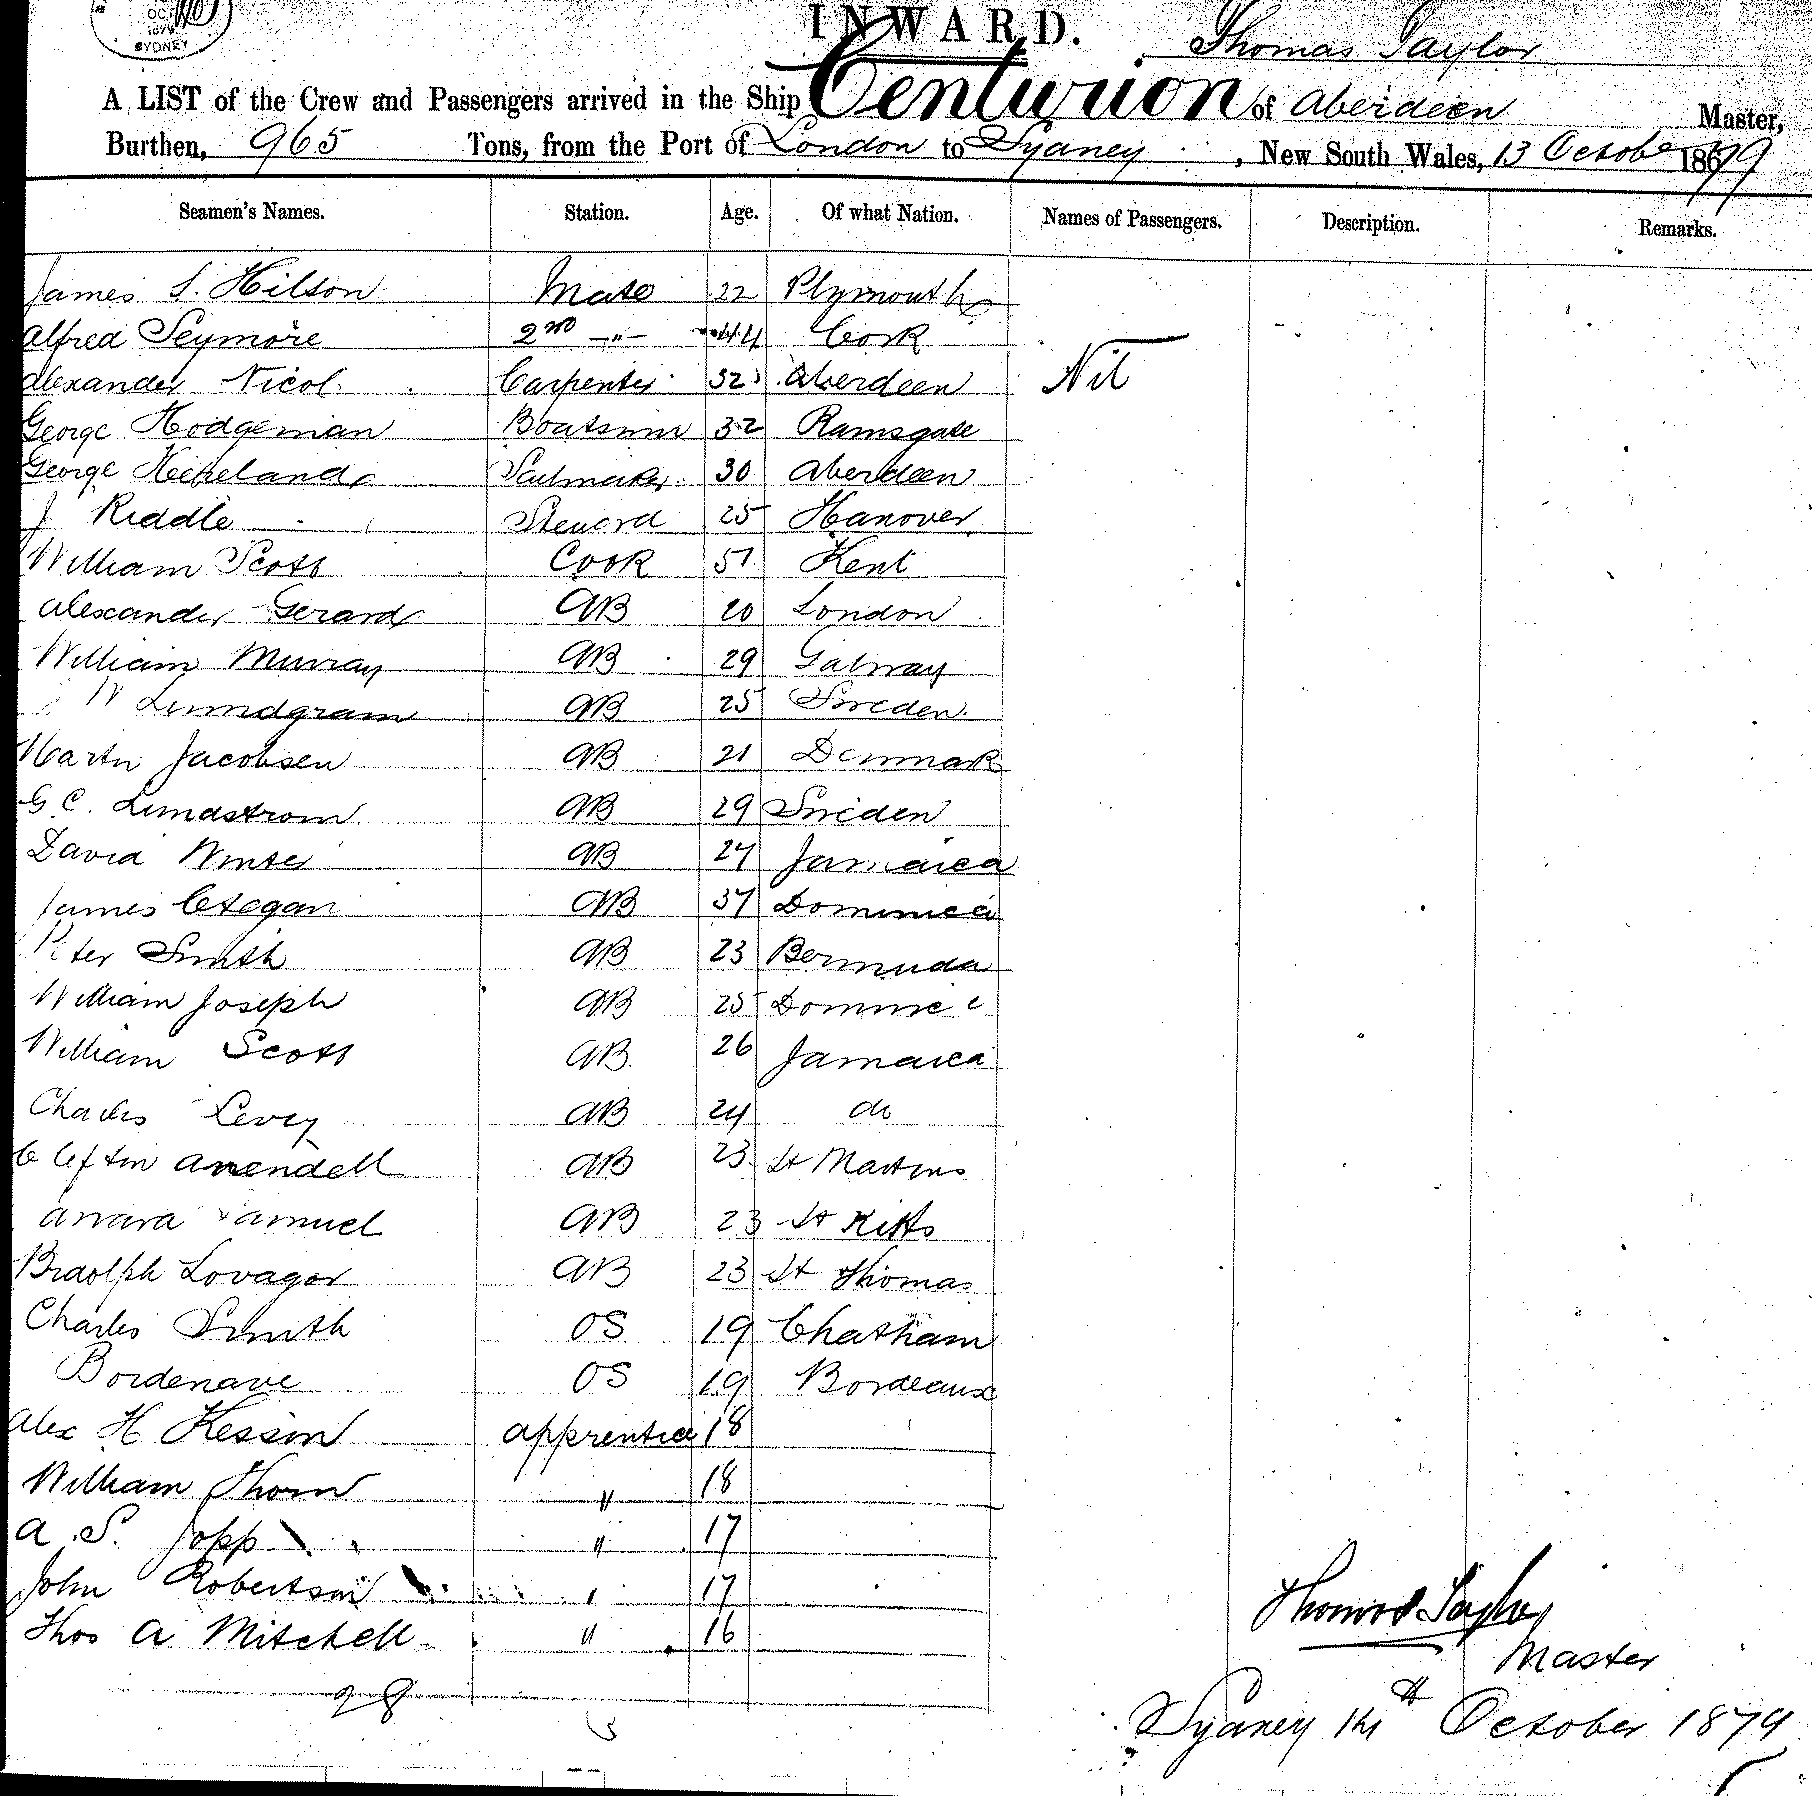 OC
1879
SYDNEY
INWARD.
Thomas Taylor
A LIST of the Crew and Passengers arrived in the Ship Centurion of Aberdeen Master,
Burthen, 965 Tons, from the Port of London to Sydney, New South Wales, 13 October 1879
Seamen's Names. Station. Age. Of what Nation. Names of Passengers. Description. Remarks.
James S. Hilson Mate 22 Plymouth
Alfred Seymore 2nd -"- 44 Cork
Alexander Nicol Carpenter 32 Aberdeen Nil
George Hodgeman Boatswn 32 Ramsgate
George Sailmaker 30 Aberdeen
J Riddle Steward 25 Hanover
William Scott Cook 51 Kent
Alexander Gerard AB 20 London
William Murray AB 29 Galway
W Lundgram AB 25 Sweden
Martin Jacobsen AB 21 Denmark
G C. Lundstrom AB 29 Sweden
David Winter AB 27 Jamaica
James AB 37 Dominica
Peter Smith AB 23 Bermuda
William Joseph AB 25 Dominic
William Scott AB 26 Jamaica
Charles Levey AB 24 do
Arrendell AB 23 St Martins
Samuel AB 23 St Kitts
Lovager AB 23 St Thomas
Charles Smith OS 19 Chatham
Bordenave OS 19 Bordeaux
Alex H Kessin apprentice 18
William Thom " 18
A. S. Jopp " 17
John Robertson " 17
Thos A Mitchell " 16
28
Thomas Taylor
Master
Sydney 14th October 1879